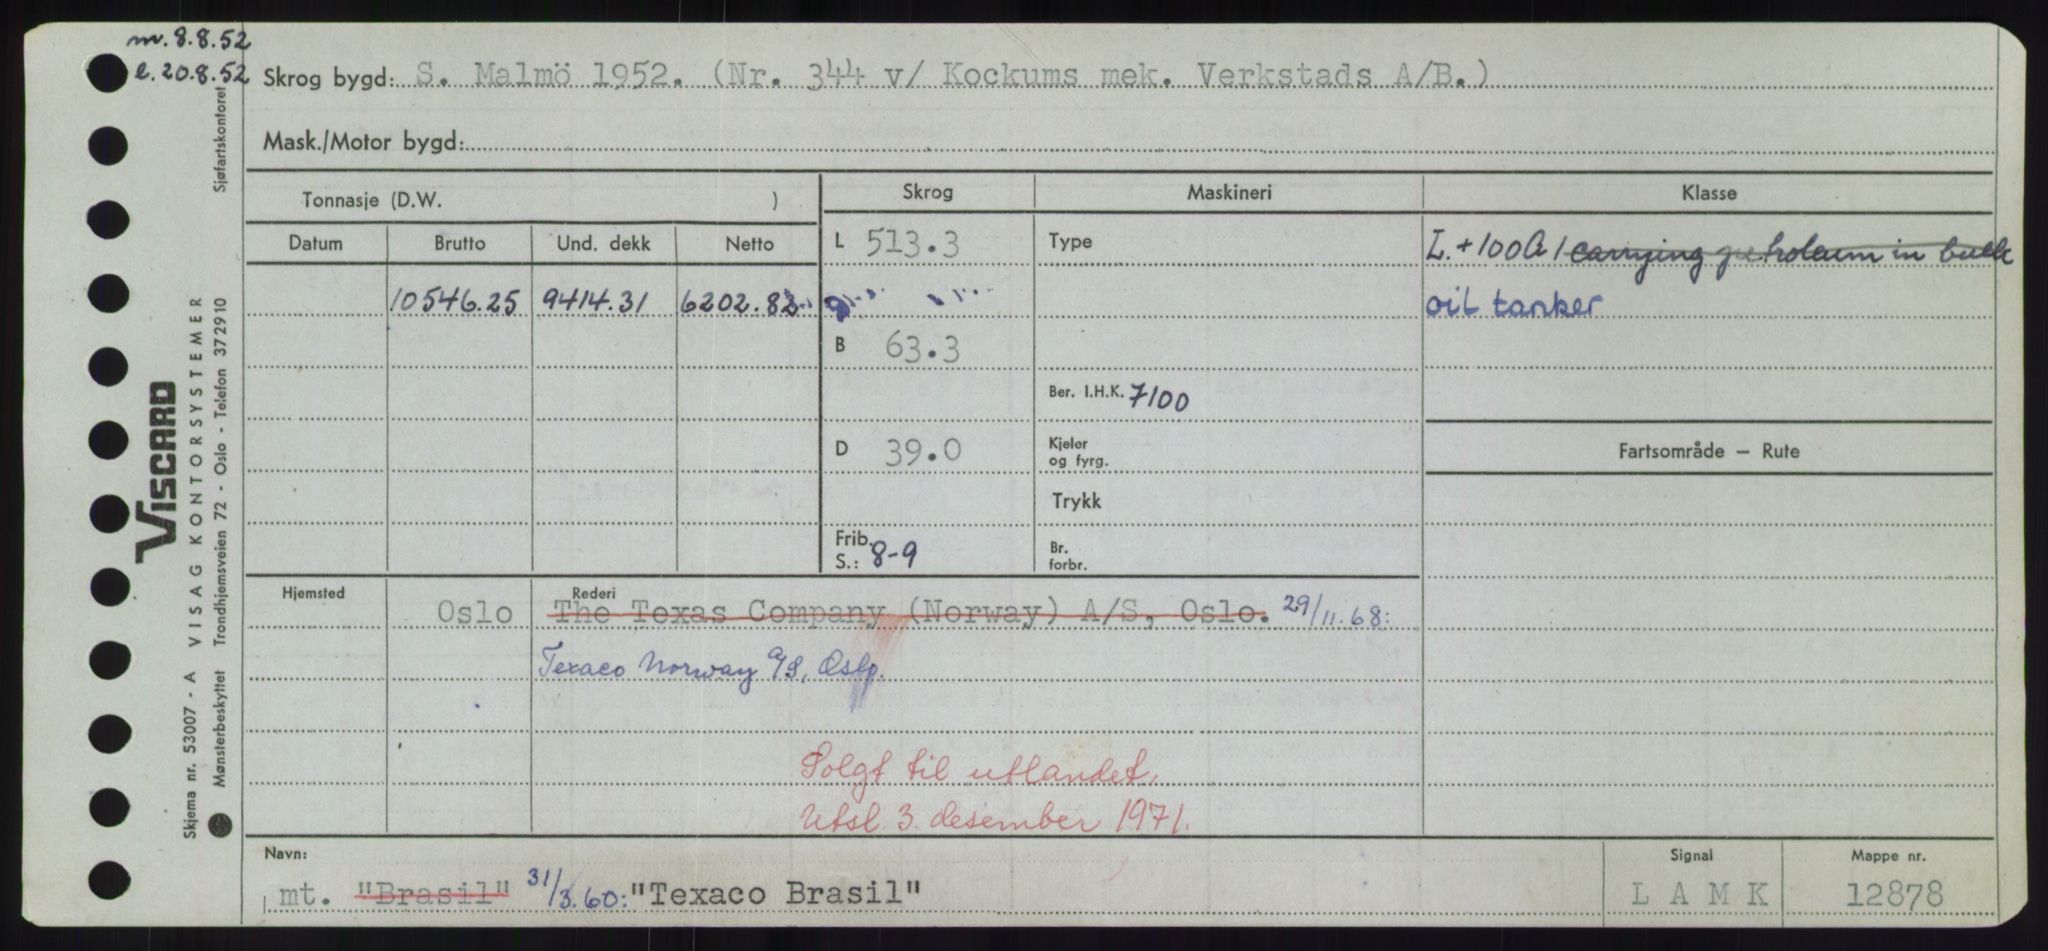 m. 8.8.52
l. 20.8.52
Skrog bygd: S. Malmö 1952. (Nr. 344 v/ Kockums mek. Verkstads A/B.)
Mask./Motor bygd:
Tonnasje (D.W. )
Skrog
Maskineri
Klasse
Datum
Brutto
Und. dekk
Netto
10546.25 9414.31 6202.82
L 513.3
B 63.3
D 39.0
Frib.
S.: 8-9
Type
Ber. I.H.K. 7100
Kjeler
og fyrg.
Trykk
Br.
forbr.
L. +100A1 carrying petroleum in bulk
oil tanker
Fartsområde – Rute
Hjemsted
Rederi
Oslo The Texas Company (Norway) A/S, Oslo. 29/11.68:
Texaco Norway A/S, Oslo.
Solgt til utlandet.
Utsl. 3. desember 1971.
Navn:
mt. "Brasil" 31/3.60: "Texaco Brasil"
Signal
L A M K
Mappe nr.
12878
Skjema nr. 53007 - A VISAG KONTORSYSTEMER
VISCARD
Mønsterbeskyttet Trondhjemsveien 72 - Oslo - Telefon 372910 Sjøfartskontoret